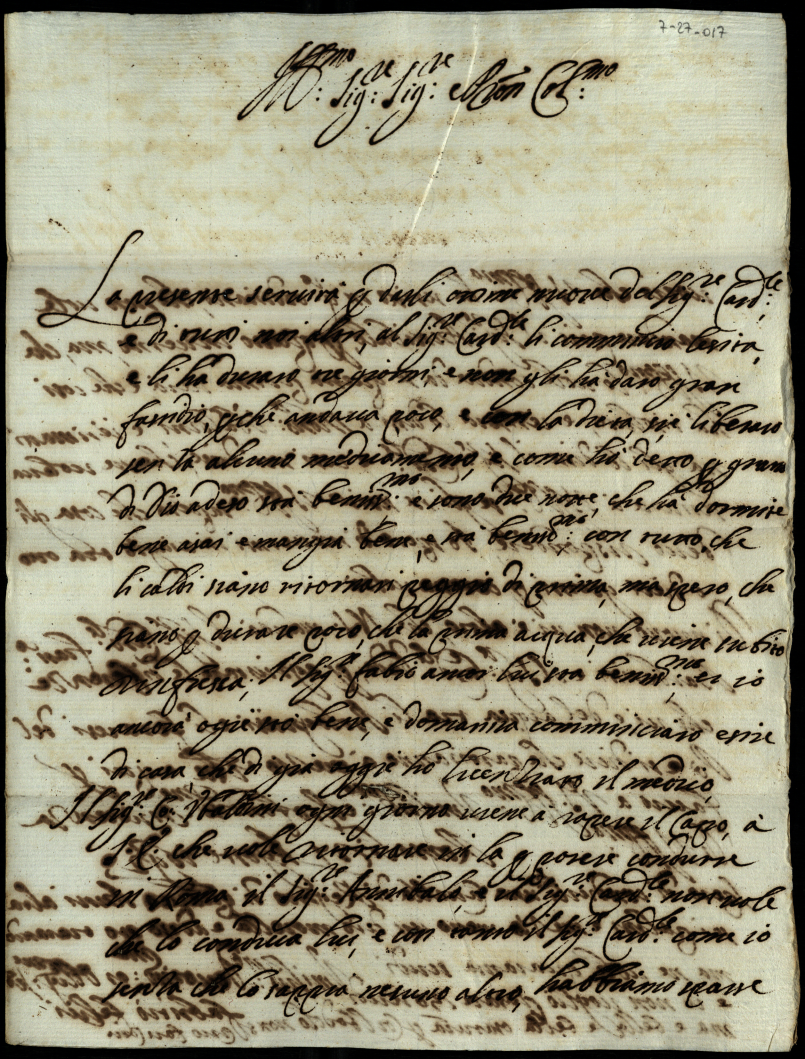 7-27-017
Ill:mo Sig:re Sig:re e Pron Col:mo
La presente servirà p darli otime nuove del Sig:re Card:le
e di tutti noi altri, al Sig:re Card:le li comminciò
e li ha durato tre giorni, e non gli ha dato gran
fastidio, pche andava poco, e con la dieta, si è liberato
senza alcuno medicamento, e come ho detto p grazia
di Dio adeso sta beniss:mo e sono due notte, che ha dormite
bene asai e mangia bene, e sta beniss:mo con tutto, che
li caldi siano ritornati peggio di prima, ma spero, che
siano p durare poco, che la prima acqua, che viene subito
rinfresca, Il Sig:re Fabio ancor lui sta beniss:mo et io
ancora ogi sto bene, e domanna comminciarò esire
di casa, che di già oggi ho licentiato il medico,
Il Sig:re Co: ogni giorno viene a sapere il Capo, a
S. E. che vole ritornare in la p potere condurre
in Roma il Sig:re Annibale, e il Sig:re Card:le non vole
che lo conduca lui, e con tanto il Sig:re Card:le come io
senza che lo sappia nesuno altro, habbiamo sparse